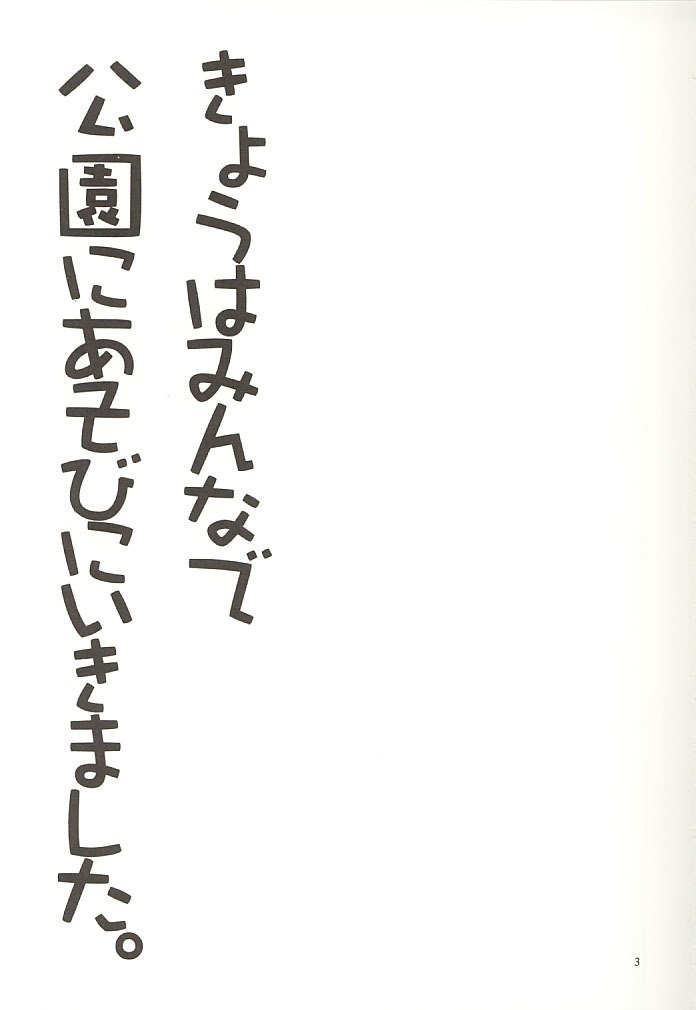 きょうはみんなで
公園にあそびにいきました。
3